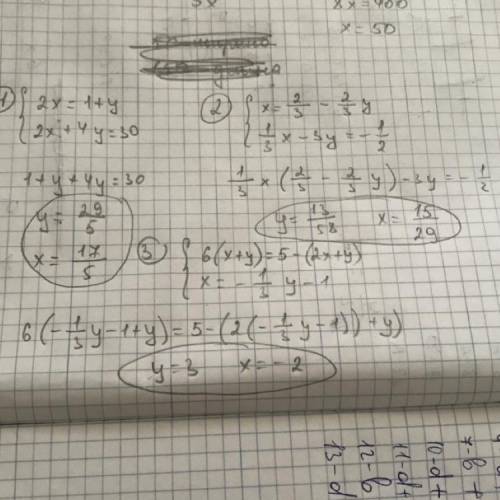 8x = 400
x = 50
1) { 2x = 1 + y
2x + 4y = 30
1 + y + 4y = 30
y = 29/5
x = 17/5
2) { x = 2/3 - 2/3 y
1/3 x - 3y = -1/2
1/3 x (2/3 - 2/3 y) - 3y = -1/2
y = 13/58 x = 15/29
3) { 6(x+y) = 5 - (2x+y)
x = -1/3 y - 1
6(-1/3 y - 1 + y) = 5 - (2(-1/3 y - 1)) + y)
y = 3 x = -2
10-d+
11-d+
12-b
13-d